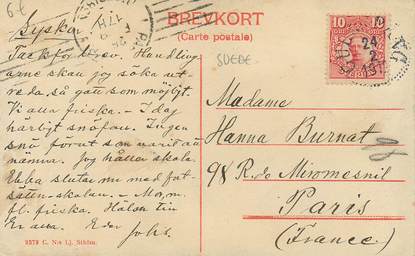 6€
BREVKORT
(Carte postale)
SUEDE
10
10
24
2
Gyska
Tack för brev. Handling
arne skau jag söka ut
reda så gott som möjligt.
Vi äro friska. – I dag
har böjt snöfau. Ingen
snö förut som varit att
nämna. Jog håller skola.
Ebba slutar nu med fort
sättn-skolan. – Mor, m.
fl. friska. Hälsn till
Er auna. Eder
Johs.
Madame
Hanna Burnat
98 R. de Miromesnil
Paris
(France)
2372 C. N:s Lj. Sthlm.